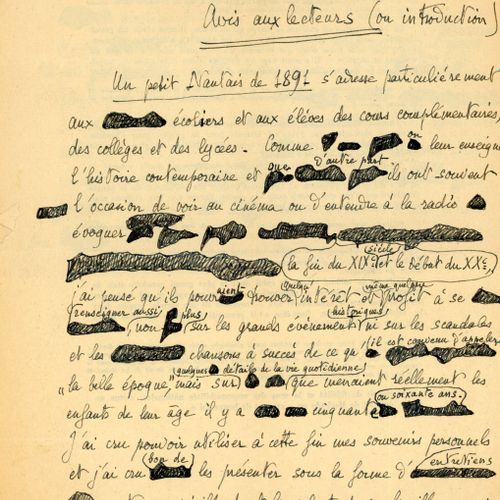 Avis aux lecteurs (ou introduction)
Un petit Nantais de 1891 s'adresse particulièrement
aux écoliers et aux élèves des cours complémentaires,
des collèges et des lycées. Comme on leur enseigne
l'histoire contemporaine et que d'autre part ils ont souvent
l'occasion de voir au cinéma ou d'entendre à la radio
évoquer
la fin du XIXe siècle et le Début du XXe,
j'ai pensé qu'ils pourraient trouver intérêt et profit à se
renseigner aussi, non plus sur les grands événements ni sur les scandales historiques
et les chansons à succès de ce qu'il est convenu d'appeler
"la belle époque, mais sur quelques détails de la vie quotidienne que menaient réellement les
enfants de leur age il y a cinquante ou soixante ans.
J'ai cru pouvoir utiliser à cette fin mes souvenirs personnels
et j'ai cru bon de les présenter sous la forme d'entretiens